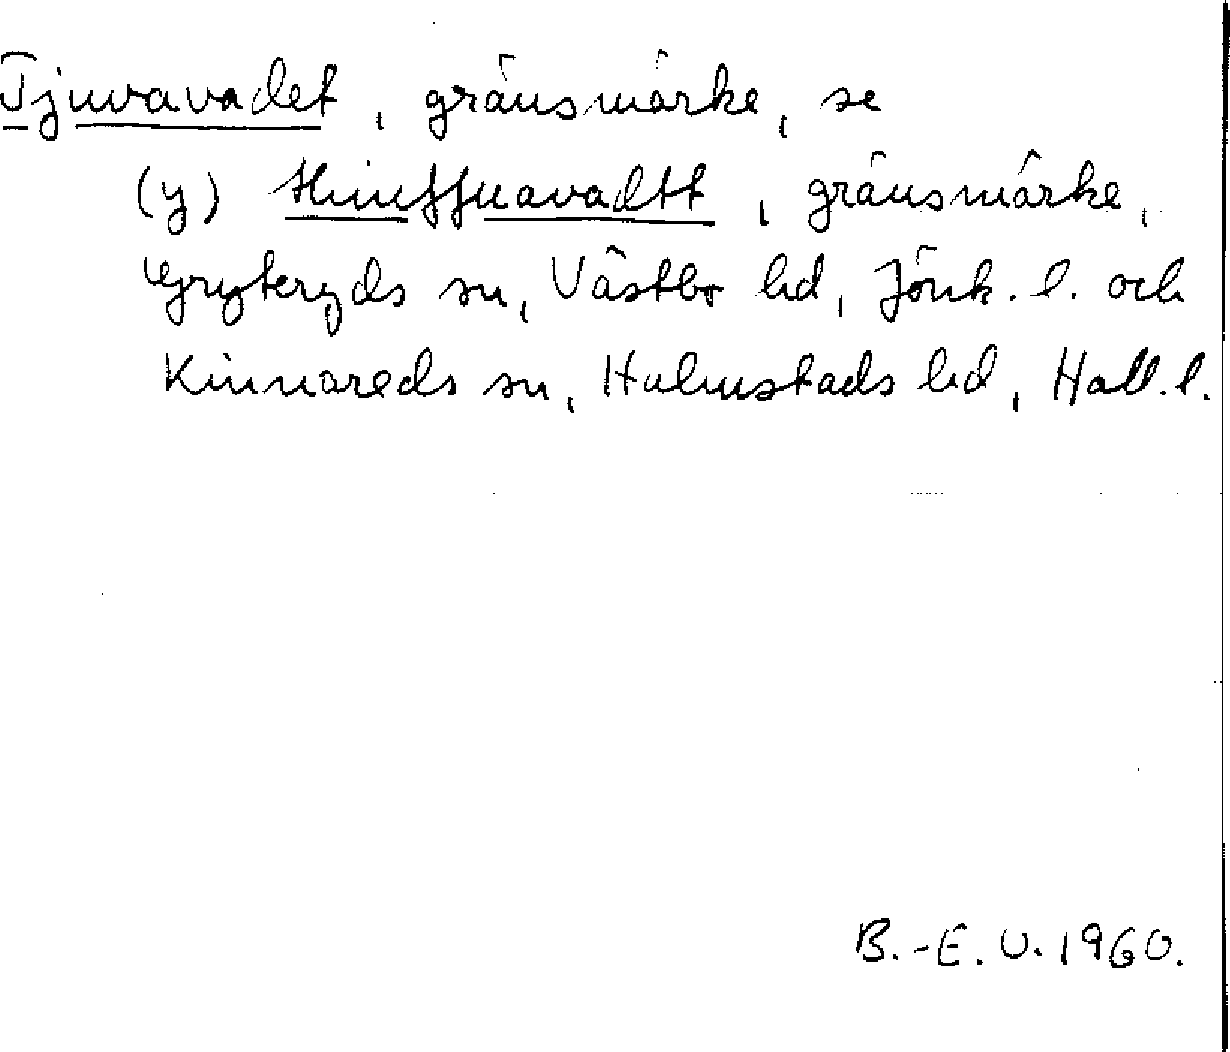 Tjuvavadet, gränsmärke, se
(y) thiuffuavadtt, gränsmärke,
Gryteryds sn, Västbo hd, Jönk. l. och
Kinnareds sn, Halmstads hd, Hall. l.
B.-E. U. 1960.